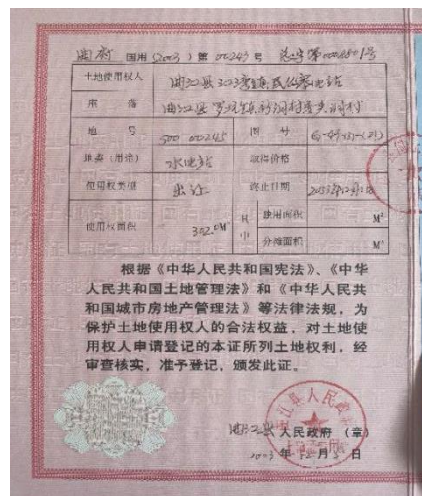 曲府 国用(2003)第 00245 号
土地使用权人 曲江县
座 落 曲江县罗坑镇新洞村
地 号 500 00245 图 号
地类(用途) 水电站 取得价格
使用权类型 出让 终止日期
使用权面积 302.0M² 其中 独用面积 M²
分摊面积 M²
根据《中华人民共和国宪法》、《中华
人民共和国土地管理法》和《中华人民共
和国城市房地产管理法》等法律法规，为
保护土地使用权人的合法权益，对土地使
用权人申请登记的本证所列土地权利，经
审查核实，准予登记，颁发此证。
曲江县人民政府（章）
2003 年 月 日